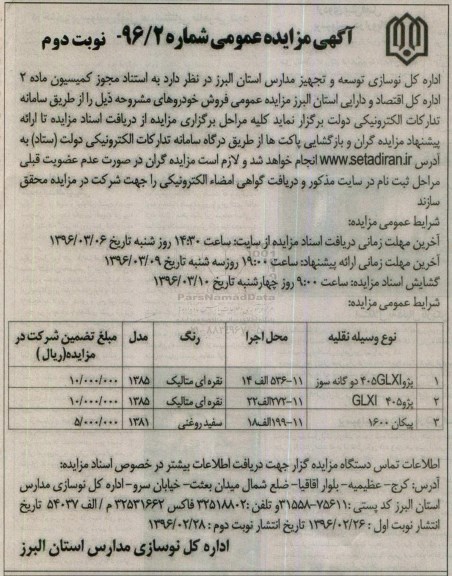 آگهی مزایده عمومی شماره ۹۶/۲- نوبت دوم
اداره کل نوسازی توسعه و تجهیز مدارس استان البرز در نظر دارد به استناد مجوز کمیسیون ماده ۲
اداره کل اقتصاد و دارایی استان البرز مزایده عمومی فروش خودروهای مشروحه ذیل را از طریق سامانه
تدارکات الکترونیکی دولت برگزار نماید کلیه مراحل برگزاری مزایده از دریافت اسناد مزایده تا ارائه
پیشنهاد مزایده گران و بازگشایی پاکت ها از طریق درگاه سامانه تدارکات الکترونیکی دولت (ستاد) به
آدرس www.setadiran.ir انجام خواهد شد و لازم است مزایده گران در صورت عدم عضویت قبلی
مراحل ثبت نام در سایت مذکور و دریافت گواهی امضاء الکترونیکی را جهت شرکت در مزایده محقق
سازند
شرایط عمومی مزایده:
آخرین مهلت زمانی دریافت اسناد مزایده از سایت: ساعت ۱۴:۳۰ روز شنبه تاریخ ۱۳۹۶/۰۳/۰۶
آخرین مهلت زمانی ارائه پیشنهاد: ساعت ۱۹:۰۰ روزسه شنبه تاریخ ۱۳۹۶/۰۳/۰۹
گشایش اسناد مزایده: ساعت ۹:۰۰ روز چهارشنبه تاریخ ۱۳۹۶/۰۳/۱۰
ParsNamadData
شرایط عمومی مزایده:
نوع وسیله نقلیه محل اجرا رنگ مدل مبلغ تضمین شرکت در مزایده(ریال)
۱ پژو۴۰۵GLXI دو گانه سوز ۱۱-۵۳۶ الف ۱۴ نقره ای متالیک ۱۳۸۵ ۱۰/۰۰۰/۰۰۰
۲ پژو۴۰۵ GLXI ۱۱-۲۷۲الف۲۲ نقره ای متالیک ۱۳۸۵ ۱۰/۰۰۰/۰۰۰
۳ پیکان ۱۶۰۰ ۱۱-۱۹۹الف۱۸ سفید روغنی ۱۳۸۱ ۵/۰۰۰/۰۰۰
اطلاعات تماس دستگاه مزایده گزار جهت دریافت اطلاعات بیشتر در خصوص اسناد مزایده:
آدرس: کرج- عظیمیه- بلوار اقاقیا- ضلع شمال میدان بعثت- خیابان سرو- اداره کل نوسازی مدارس
استان البرز کد پستی :۷۵۶۱۱-۳۱۵۵۸و تلفن :۳۲۵۱۸۸۰۲ فاکس ۳۲۵۳۱۶۶۲ م / الف ۵۴۰۳۷ تاریخ
انتشار نوبت اول : ۱۳۹۶/۰۲/۲۶ تاریخ انتشار نوبت دوم : ۱۳۹۶/۰۲/۲۸
اداره کل نوسازی مدارس استان البرز